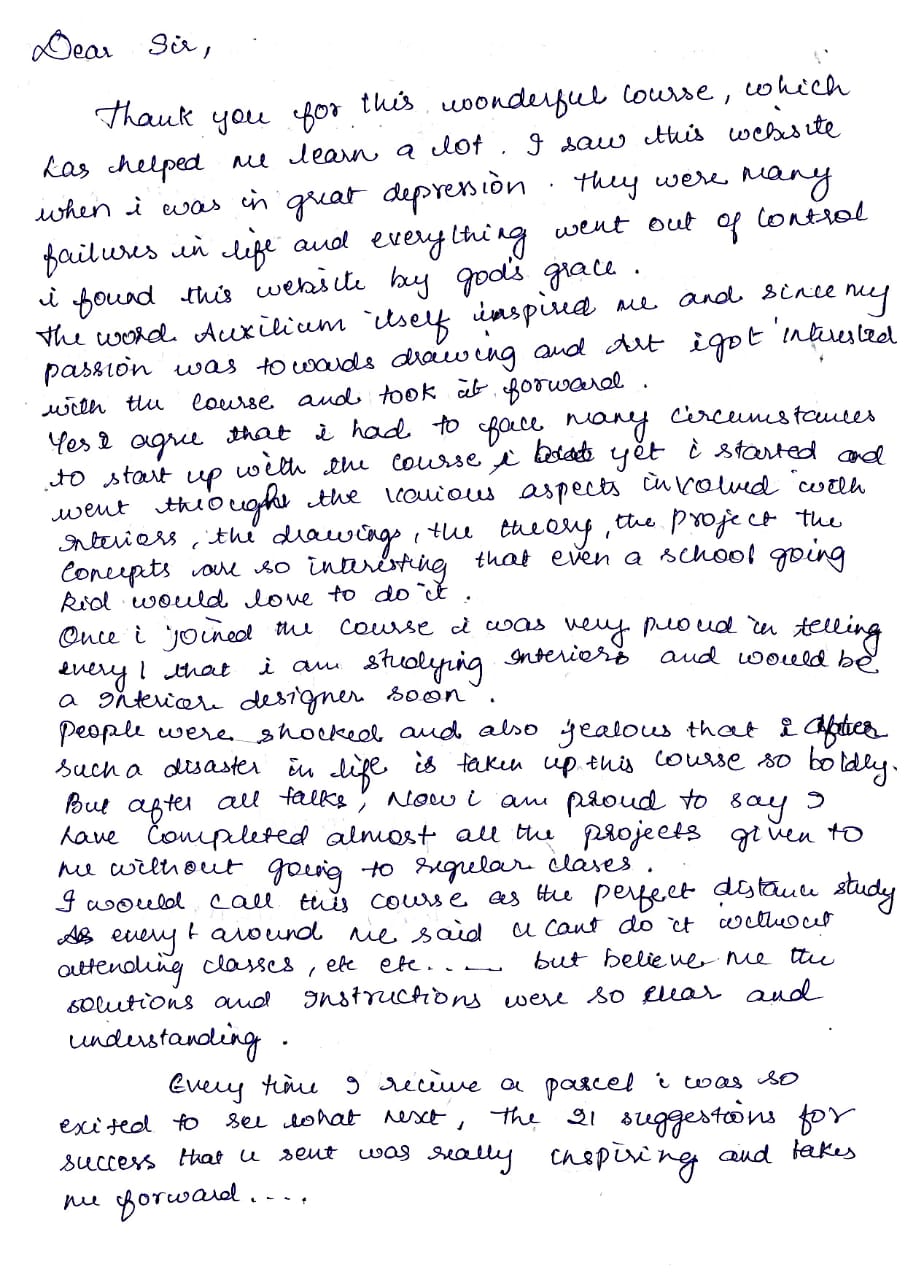 Dear Sir,
Thank you for this wonderful course, which
has helped me learn a lot. I saw this website
when i was in great depression. they were many
failures in life and everything went out of control
i found this website by god's grace.
the word Auxilium itself inspired me and since my
passion was towards drawing and Art i got interested
with the course and took it forward.
Yes I agree that i had to face many circumstances
to start up with the course i yet i started and
went throught the various aspects involved with
Interiors, the drawings, the theory, the project the
concepts are so interesting that even a school going
kid would love to do it.
Once i joined the course i was very proud in telling
every1 that i am studying Interiors and would be
a Interior designer soon.
People were shocked and also jealous that i After
such a disaster in life is taken up this course so boldly.
But after all talks, Now i am proud to say I
have completed almost all the projects given to
me without going to regular clases.
I would call this course as the perfect distance study
As every1 around me said u cant do it without
attending classes, etc etc..... but believe me the
solutions and Instructions were so clear and
understanding.
Every time I receive a parcel i was so
exited to see what next, the 21 suggestions for
success that u sent was really inspiring and takes
me forward.....